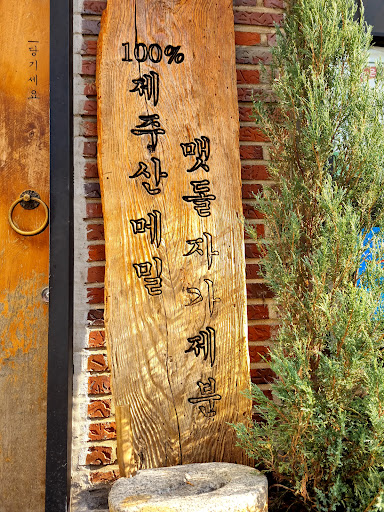 당기세요
100%
제주산메밀
맷돌자가제분